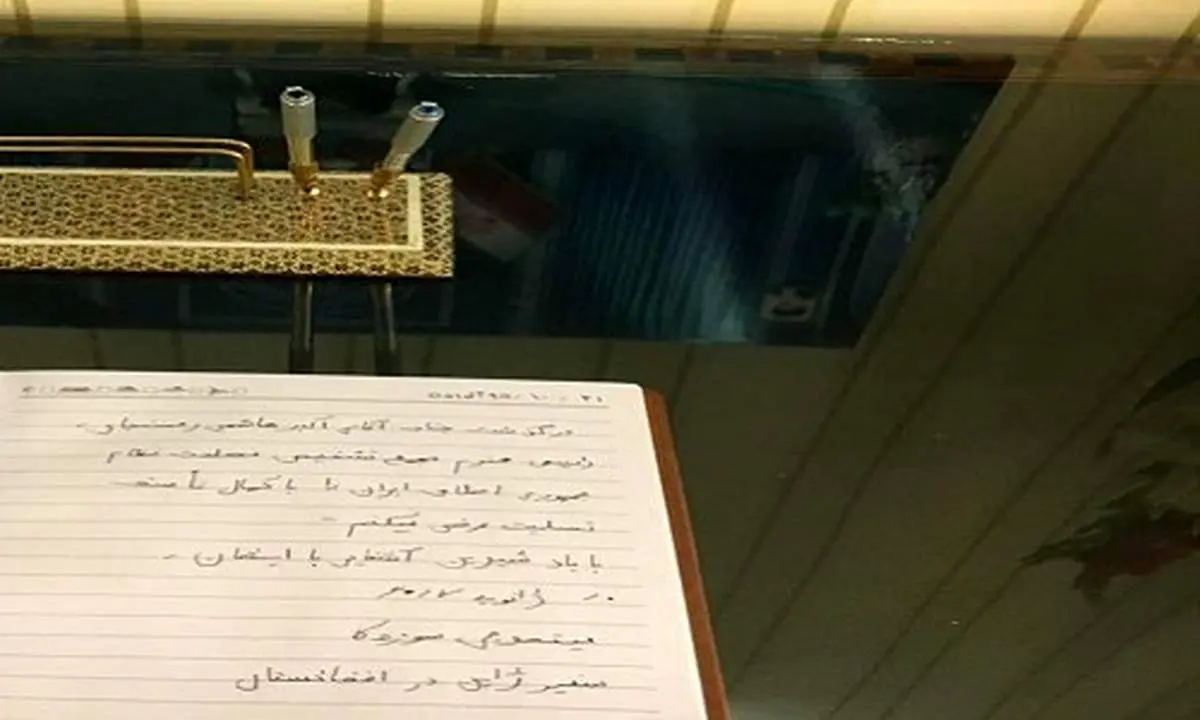 درگذشت جناب آقای اکبر هاشمی رفسنجانی،
رئیس محترم مجمع تشخیص مصلحت نظام
جمهوری اسلامی ایران را با کمال تأسف
تسلیت عرض میکنم.
با یاد شیرین آشنایی با ایشان.
میتسوجی سوزوکا
سفیر ژاپن در افغانستان